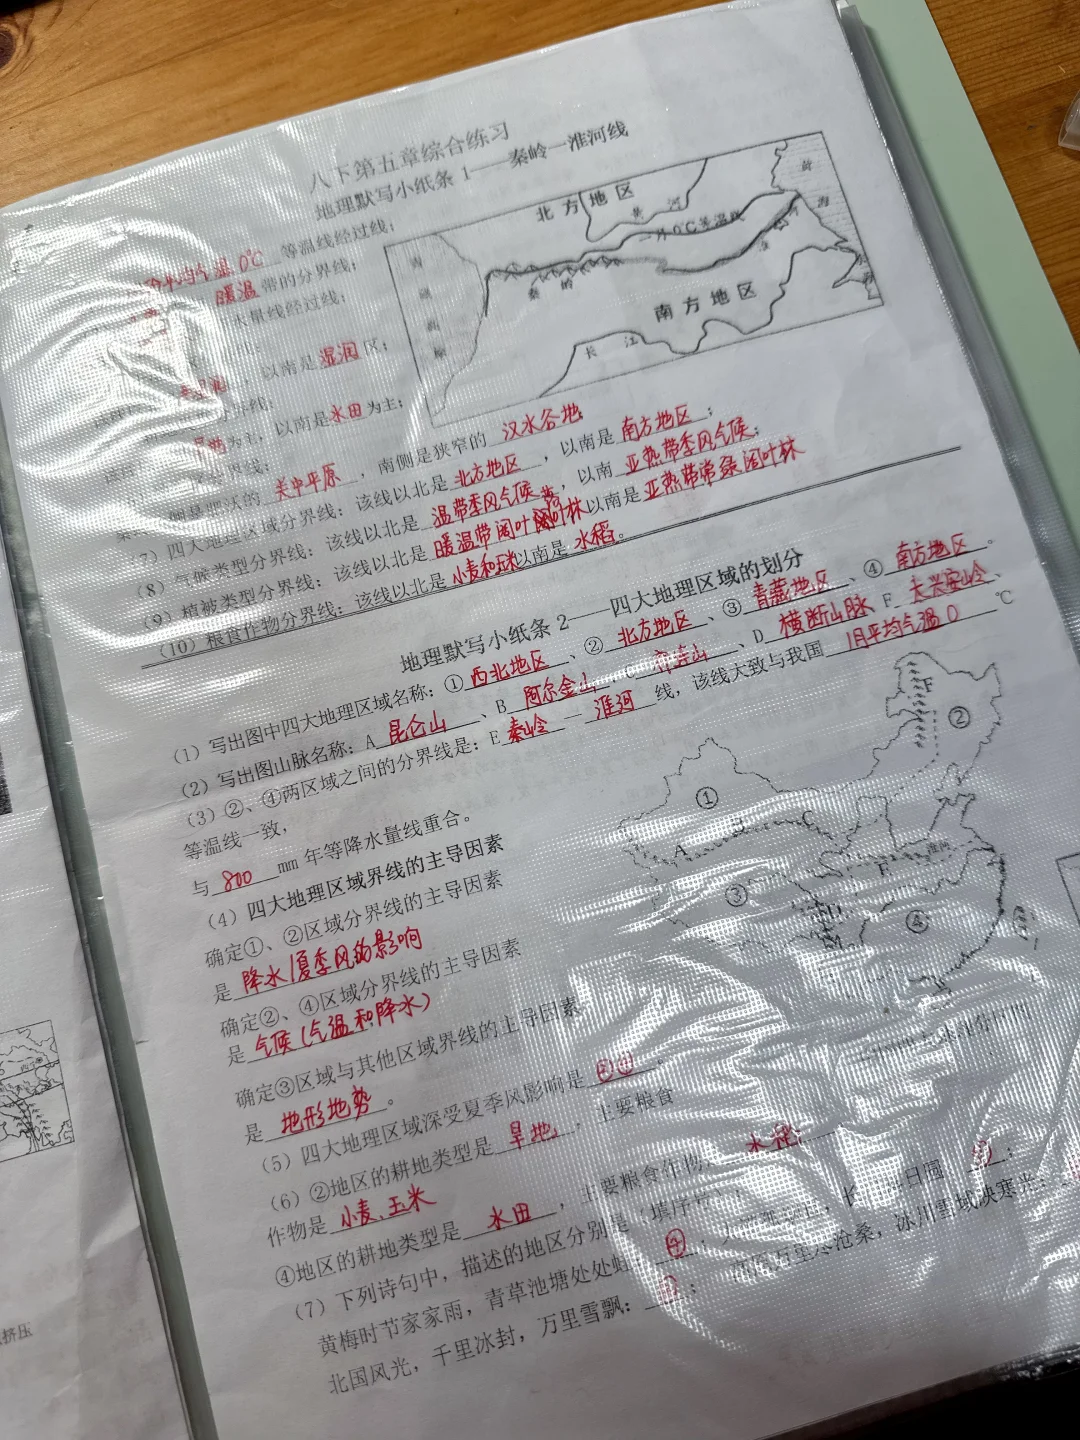 八下第五章综合练习
地理默写小纸条1——秦岭—淮河线
均气温0℃ 等温线经过线；
暖温 带的分界线；
水量线经过线；
，以南是 湿润 区；
界线：
为主，以南是 水田 为主；
界线：
关中平原 ，南侧是狭窄的 汉水谷地
（7）四大地理区域分界线：该线以北是 北方地区 ，以南是 南方地区 ；
（8）气候类型分界线：该线以北是 温带季风气候 ，以南 亚热带季风气候；
（9）植被类型分界线：该线以北是 暖温带阔叶 林 以南是 亚热带常绿阔叶林
（10）粮食作物分界线：该线以北是 小麦和玉米 以南是 水稻。
北方地区
黄 河
一月0℃等温线
秦 岭
淮 河
南方地区
长 江
青
藏
高
原
海
地理默写小纸条2——四大地理区域的划分
（1）写出图中四大地理区域名称：① 西北地区 、② 北方地区 、③ 青藏地区 、④ 南方地区 。
（2）写出图山脉名称：A 昆仑山 、B 阿尔金山 C 祁连山 、D 横断山脉 F 大兴安岭、
（3）②、④两区域之间的分界线是：E 秦岭 — 淮河 线，该线大致与我国 1月平均气温0 ℃
等温线一致，
与 800 mm年等降水量线重合。
（4）四大地理区域界线的主导因素
确定①、②区域分界线的主导因素
是 降水/夏季风的影响
确定②、④区域分界线的主导因素
是 气候（气温和降水）
确定③区域与其他区域界线的主导因素
是 地形地势 。
① ② ③ ④ A B C F 淮河
（5）四大地理区域深受夏季风影响是 ②④ 。
（6）②地区的耕地类型是 旱地， ，主要粮食
作物是 小麦、玉米
④地区的耕地类型是 水田 ，主要粮食作物 水稻
（7）下列诗句中，描述的地区分别是（填序号）：
黄梅时节家家雨，青草池塘处处蛙 ④ ；
北国风光，千里冰封，万里雪飘： ；
沧桑，冰川雪域映寒光：
挤压